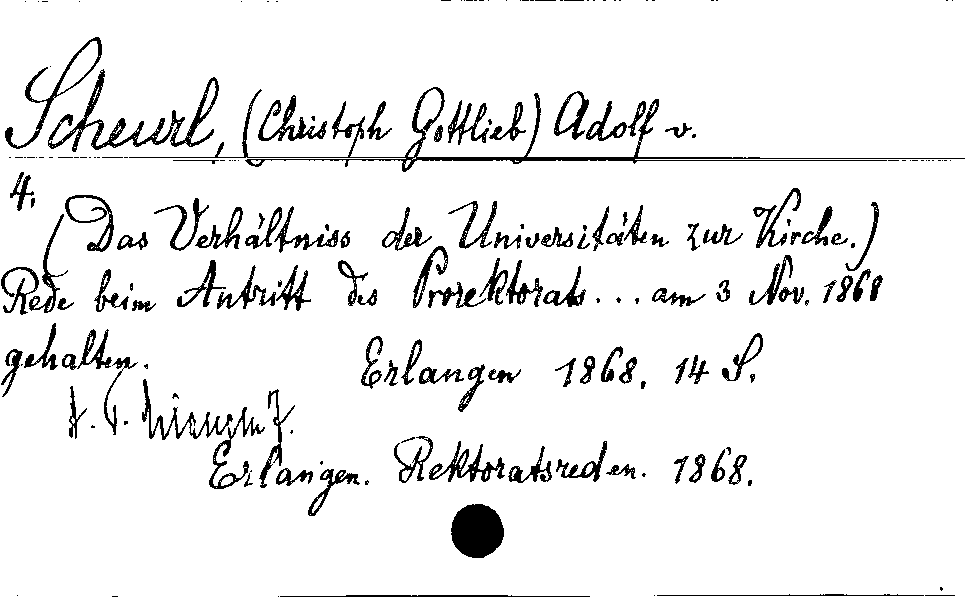 Scheurl, (Christoph Gottlieb) Adolf v.
4.
(Das Verhältniss der Universitäten zur Kirche.)
Rede beim Antritt des Prorektorats... am 3 Nov. 1868
gehalten. Erlangen 1868. 14 S.
Erlangen. Rektoratsreden. 1868.